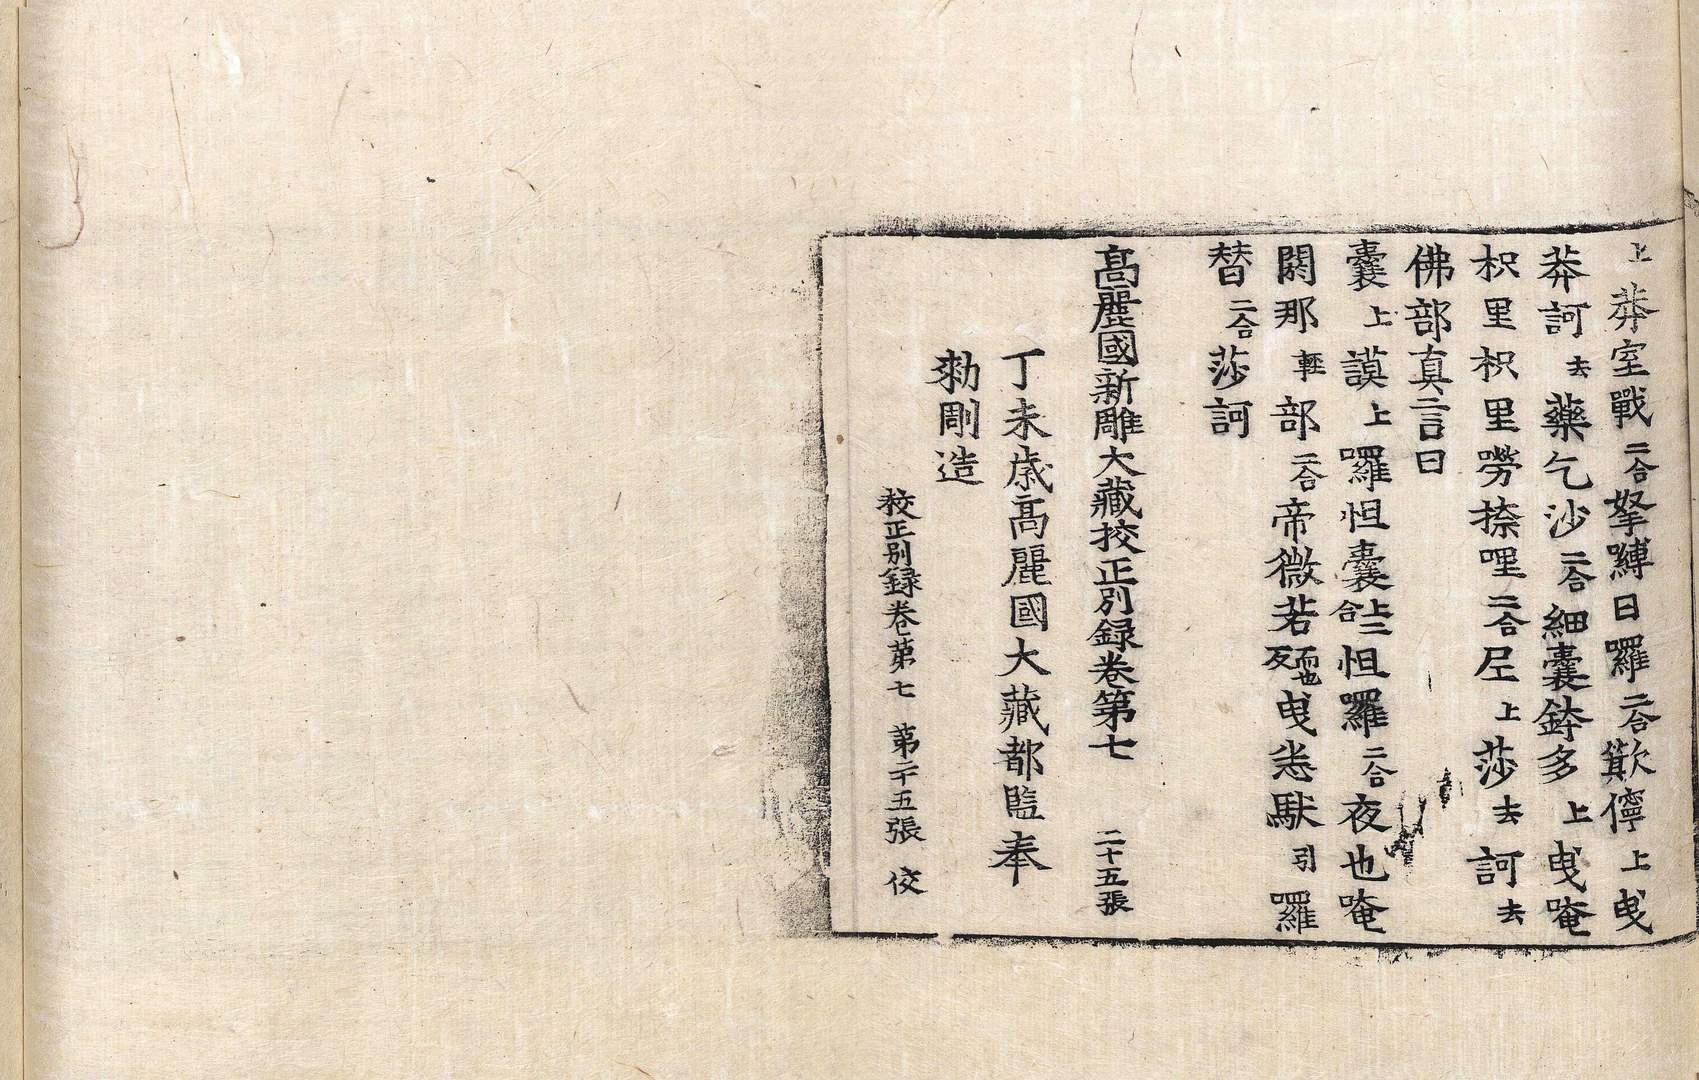 上莽室戰二合拏嚩日羅二合欺儜上曳
莽訶去藥乞沙二合細囊鉢多上曳唵
枳里枳里勞捺哩二合𡰱上莎去訶去
佛部真言曰
囊上謨上囉怛囊上二合怛羅二合夜也唵
閼那輕部二合帝微若曳悉馱引羅
替二合莎訶
高麗國新雕大藏挍正別錄卷第七 二十五張
丁未歲高麗國大藏都監奉
勑剛造
挍正別錄卷第七 第二十五張 佼